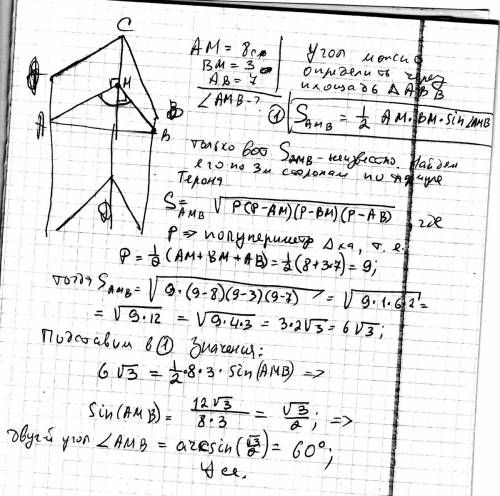 C
AM = 8см
BM = 3
AB = 7
∠AMB - ?
Угол можно
определить через
площадь Δ AВВ
① S_AMB = 1/2 AM·BM·sin∠AMB
M
A
B
только вот S_AMB - неизвестно. Найдем
его по 3м сторонам по
Герона
S_AMB = √(P(P-AM)(P-BM)(P-AB)) где
P => полупериметр Δка, т. е.
P = 1/2 (AM+BM+AB) = 1/2 (8+3+7) = 9;
тогда S_AMB = √(9·(9-8)(9-3)(9-7)) = √(9·1·6·2) =
= √(9·12) = √(9·4·3) = 3·2√3 = 6√3;
Подставим в ① значения:
6√3 = 1/2·8·3·sin(AMB) =>
sin(AMB) = 12√3/8·3 = √3/2; =>
угол ∠AMB = arcsin(√3/2) = 60°;